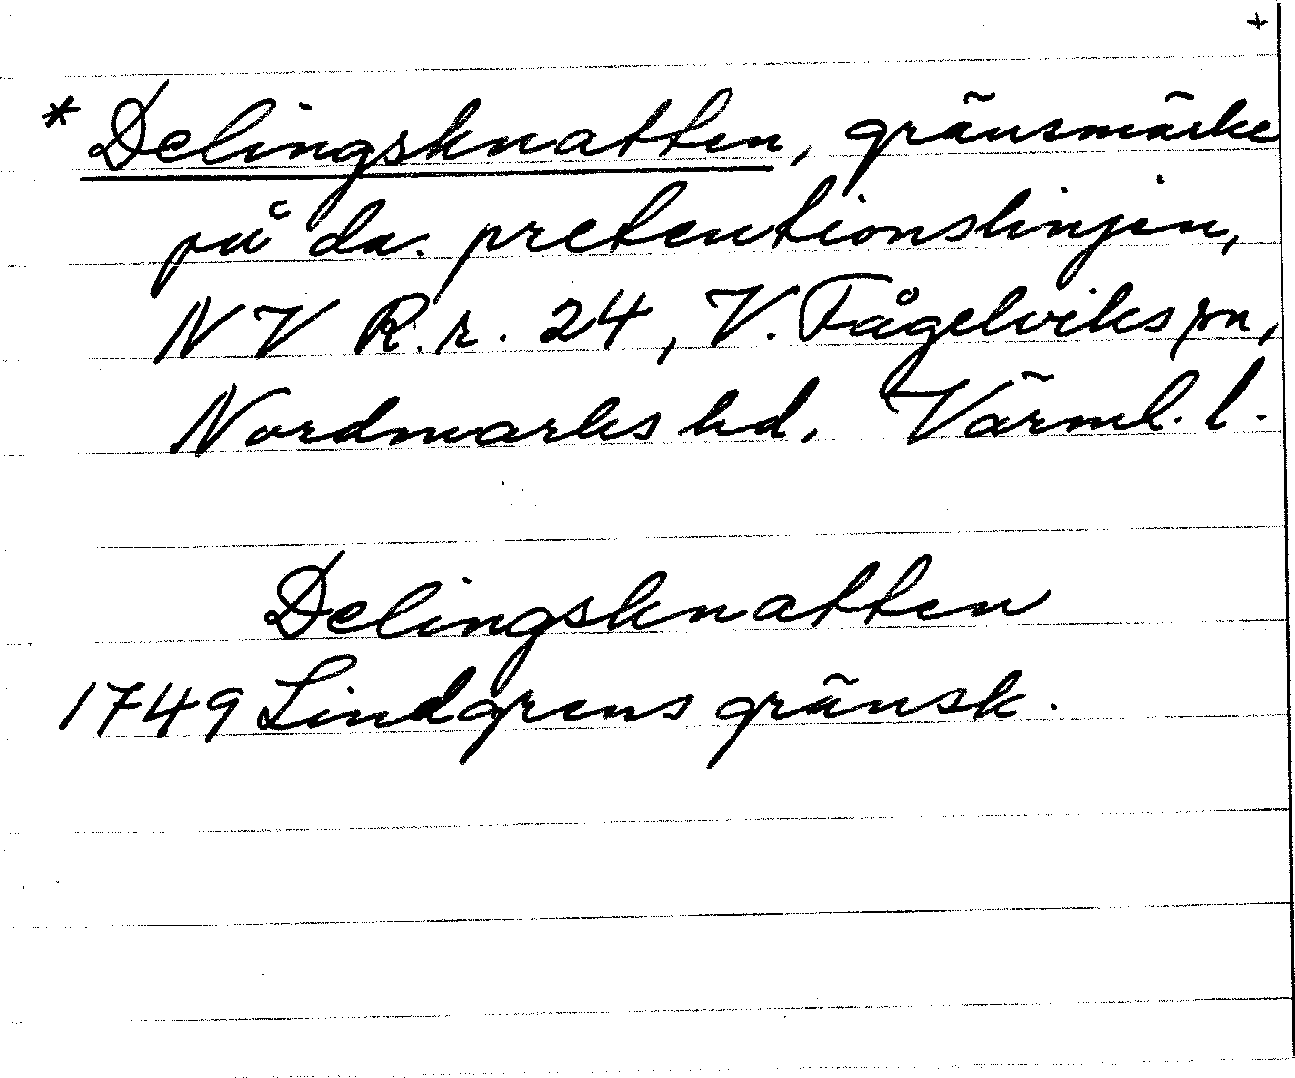 +
* Delingsknatten, gränsmärke
på da. pretentionslinjen,
NV R.r. 24, V. Fågelviks sn,
Nordmarks hd. Värml. l.
Delingsknatten
1749 Lindgrens gränsk.